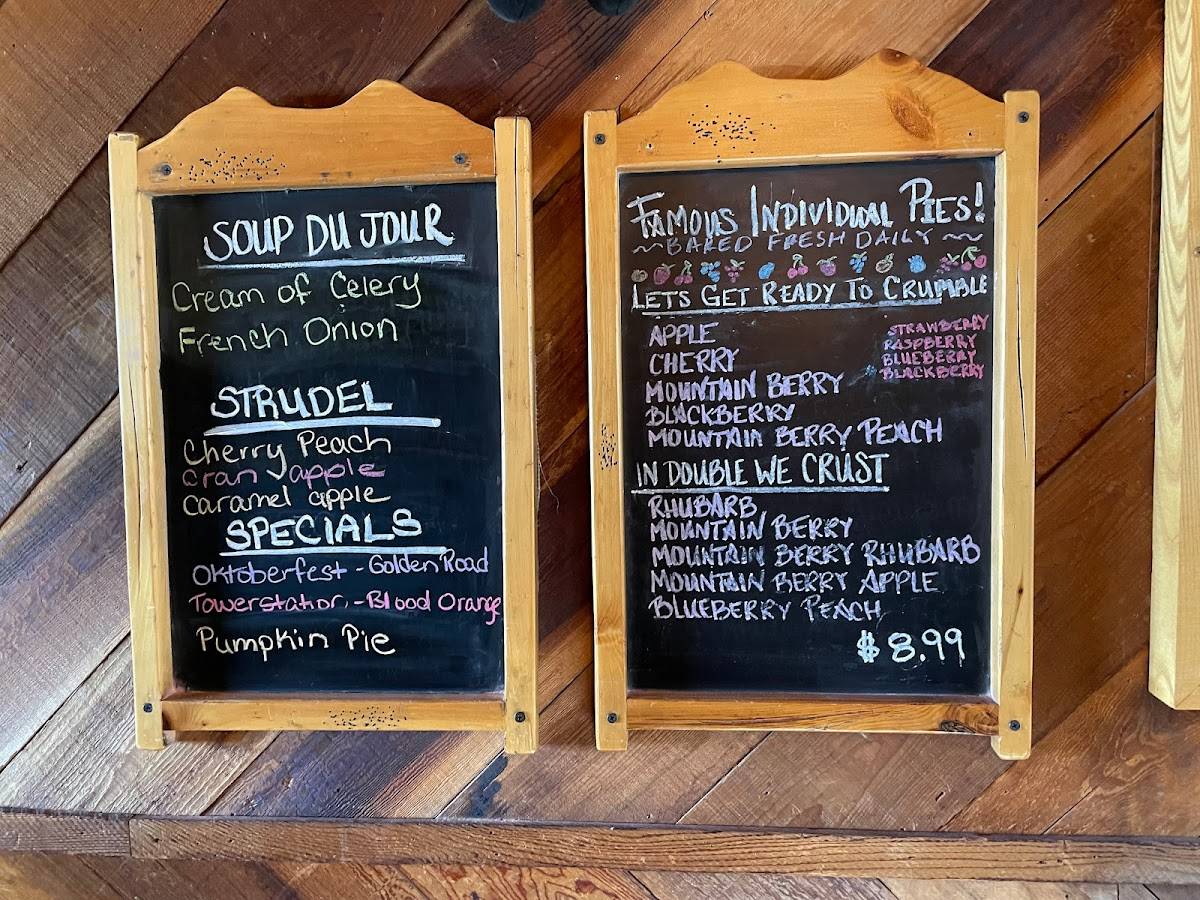 SOUP DU JOUR
Cream of Celery
French Onion
STRUDEL
Cherry Peach
cran apple
caramel apple
SPECIALS
Oktoberfest - Golden Road
Towerstation - Blood Orange
Pumpkin Pie
FAMOUS INDIVIDUAL PIES!
~BAKED FRESH DAILY~
LETS GET READY TO CRUMBLE
APPLE
CHERRY
MOUNTAIN BERRY
BLACKBERRY
MOUNTAIN BERRY PEACH
STRAWBERRY
RASPBERRY
BLUEBERRY
BLACKBERRY
IN DOUBLE WE CRUST
RHUBARB
MOUNTAIN BERRY
MOUNTAIN BERRY RHUBARB
MOUNTAIN BERRY APPLE
BLUEBERRY PEACH
$8.99